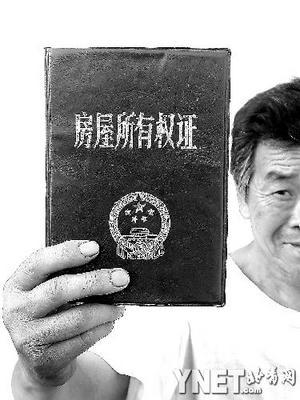 房屋所有权证
YNET 北青网
.com